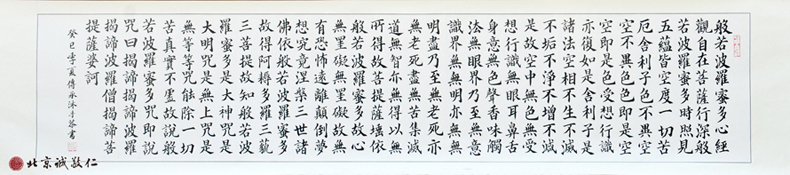 般若波羅蜜多心經
觀自在菩薩行深般
若波羅蜜多時照見
五蘊皆空度一切苦
厄舍利子色不異空
空不異色色即是空
空即是色受想行識
亦復如是舍利子是
諸法空相不生不滅
不垢不淨不增不減
是故空中無色無受
想行識無眼耳鼻舌
身意無色聲香味觸
法無眼界乃至無意
識界無無明亦無無
明盡乃至無老死亦
無老死盡無苦集滅
道無智亦無得以無
所得故菩提薩埵依
般若波羅蜜多故心
無罣礙無罣礙故無
有恐怖遠離顛倒夢
想究竟涅槃三世諸
佛依般若波羅蜜多
故得阿耨多羅三藐
三菩提故知般若波
羅蜜多是大神咒是
大明咒是無上咒是
無等等咒能除一切
苦真實不虛故說般
若波羅蜜多咒即說
咒曰揭諦揭諦波羅
揭諦波羅僧揭諦菩
提薩婆訶
癸巳季夏傳承沐手恭書
北京誠敬仁